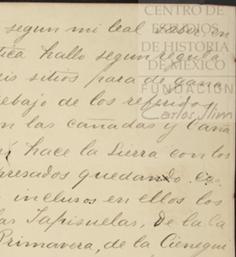 segun mi leal saber, en
tica hallo segun
is sitios para de gana
ebajo de los referidos
n las cañadas y
hace la Sierra con los
presados quedando. Ca
inclusos en ellos los
as Tapisuelas, de la La
Primavera, de la Cienegui
CENTRO DE
ESTUDIOS
DE HISTORIA
DE MÉXICO
FUNDACIÓN
Carlos Slim